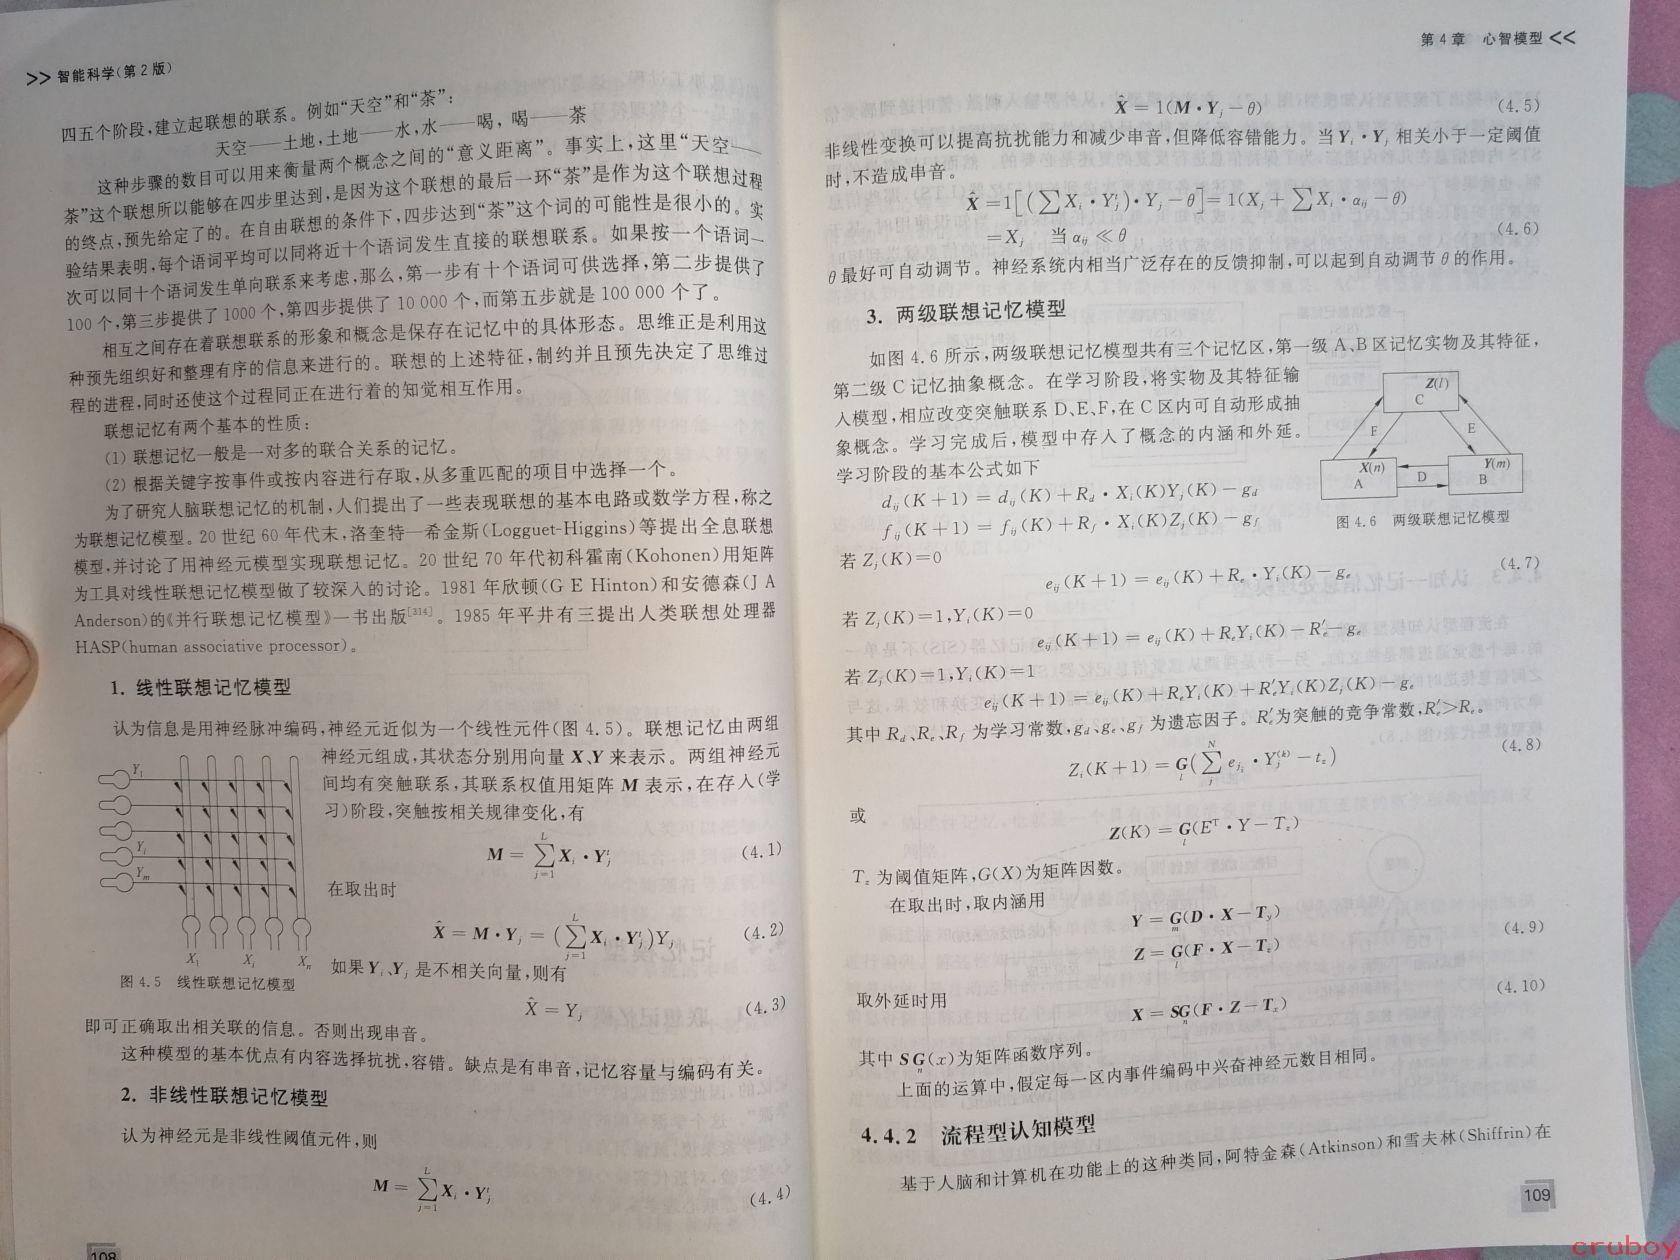 >> 智能科学(第2版)
四五个阶段,建立起联想的联系。例如“天空”和“茶”:
天空——土地,土地——水,水——喝,喝——茶
这种步骤的数目可以用来衡量两个概念之间的“意义距离”。事实上,这里“天空——
茶”这个联想所以能够在四步里达到,是因为这个联想的最后一环“茶”是作为这个联想过程
的终点,预先给定了的。在自由联想的条件下,四步达到“茶”这个词的可能性是很小的。实
验结果表明,每个语词平均可以同将近十个语词发生直接的联想联系。如果按一个语词一
次可以同十个语词发生单向联系来考虑,那么,第一步有十个语词可供选择,第二步提供了
100个,第三步提供了1000个,第四步提供了10 000个,而第五步就是100 000个了。
相互之间存在着联想联系的形象和概念是保存在记忆中的具体形态。思维正是利用这
种预先组织好和整理有序的信息来进行的。联想的上述特征,制约并且预先决定了思维过
程的进程,同时还使这个过程同正在进行着的知觉相互作用。
联想记忆有两个基本的性质:
(1) 联想记忆一般是一对多的联合关系的记忆。
(2) 根据关键字按事件或按内容进行存取,从多重匹配的项目中选择一个。
为了研究人脑联想记忆的机制,人们提出了一些表现联想的基本电路或数学方程,称之
为联想记忆模型。20世纪60年代末,洛奎特—希金斯(Logguet-Higgins)等提出全息联想
模型,并讨论了用神经元模型实现联想记忆。20世纪70年代初科霍南(Kohonen)用矩阵
为工具对线性联想记忆模型做了较深入的讨论。1981年欣顿(G E Hinton)和安德森(J A
Anderson)的《并行联想记忆模型》一书出版[314]。1985年平井有三提出人类联想处理器
HASP(human associative processor)。
1. 线性联想记忆模型
认为信息是用神经脉冲编码,神经元近似为一个线性元件(图4.5)。联想记忆由两组
神经元组成,其状态分别用向量X、Y来表示。两组神经元
间均有突触联系,其联系权值用矩阵M表示,在存入(学
习)阶段,突触按相关规律变化,有
M = ∑_{j=1}^{L} X_i · Y_j^t (4.1)
在取出时
X̂ = M · Y_j = (∑_{j=1}^{L} X_i · Y_j^t)Y_j (4.2)
如果Y_i、Y_j是不相关向量,则有
X̂ = Y_j (4.3)
Y_1
Y_i
Y_m
X_1 X_j X_n
图4.5 线性联想记忆模型
即可正确取出相关联的信息。否则出现串音。
这种模型的基本优点有内容选择抗扰,容错。缺点是有串音,记忆容量与编码有关。
2. 非线性联想记忆模型
认为神经元是非线性阈值元件,则
M = ∑_{j=1}^{L} X_i · Y_j^t (4.4)
108
第4章 心智模型 <<
X̂ = 1(M · Y_j − θ) (4.5)
非线性变换可以提高抗扰能力和减少串音,但降低容错能力。当Y_i · Y_j相关小于一定阈值
时,不造成串音。
X̂ = 1[(∑X_i · Y_j^t) · Y_j − θ] = 1(X_j + ∑X_i · α_ij − θ)
= X_j 当 α_ij ≪ θ (4.6)
θ最好可自动调节。神经系统内相当广泛存在的反馈抑制,可以起到自动调节θ的作用。
3. 两级联想记忆模型
如图4.6所示,两级联想记忆模型共有三个记忆区,第一级A、B区记忆实物及其特征,
第二级C记忆抽象概念。在学习阶段,将实物及其特征输
入模型,相应改变突触联系D、E、F,在C区内可自动形成抽
象概念。学习完成后,模型中存入了概念的内涵和外延。
学习阶段的基本公式如下
Z(l)
C
F E
X(n)
A
D
Y(m)
B
图4.6 两级联想记忆模型
d_ij(K+1) = d_ij(K) + R_d · X_i(K)Y_j(K) − g_d
f_ij(K+1) = f_ij(K) + R_f · X_i(K)Z_j(K) − g_f
若 Z_j(K)=0
e_ij(K+1) = e_ij(K) + R_e · Y_i(K) − g_e (4.7)
若 Z_j(K)=1,Y_i(K)=0
e_ij(K+1) = e_ij(K) + R_eY_i(K) − R′_e − g_e
若 Z_j(K)=1,Y_i(K)=1
e_ij(K+1) = e_ij(K) + R_eY_i(K) + R′_eY_i(K)Z_j(K) − g_e
其中R_d、R_e、R_f为学习常数,g_d、g_e、g_f为遗忘因子。R′_e为突触的竞争常数,R′_e>R_e。
Z_i(K+1) = G_l(∑_j^N e_ji · Y_j^(k) − t_z) (4.8)
或
Z(K) = G_l(E^T · Y − T_z)
T_z为阈值矩阵,G(X)为矩阵因数。
在取出时,取内涵用
Y = G_m(D · X − T_y)
Z = G_l(F · X − T_z) (4.9)
取外延时用
X = SG_n(F · Z − T_x) (4.10)
其中SG_n(x)为矩阵函数序列。
上面的运算中,假定每一区内事件编码中兴奋神经元数目相同。
4.4.2 流程型认知模型
基于人脑和计算机在功能上的这种类同,阿特金森(Atkinson)和雪夫林(Shiffrin)在
109
cruboy